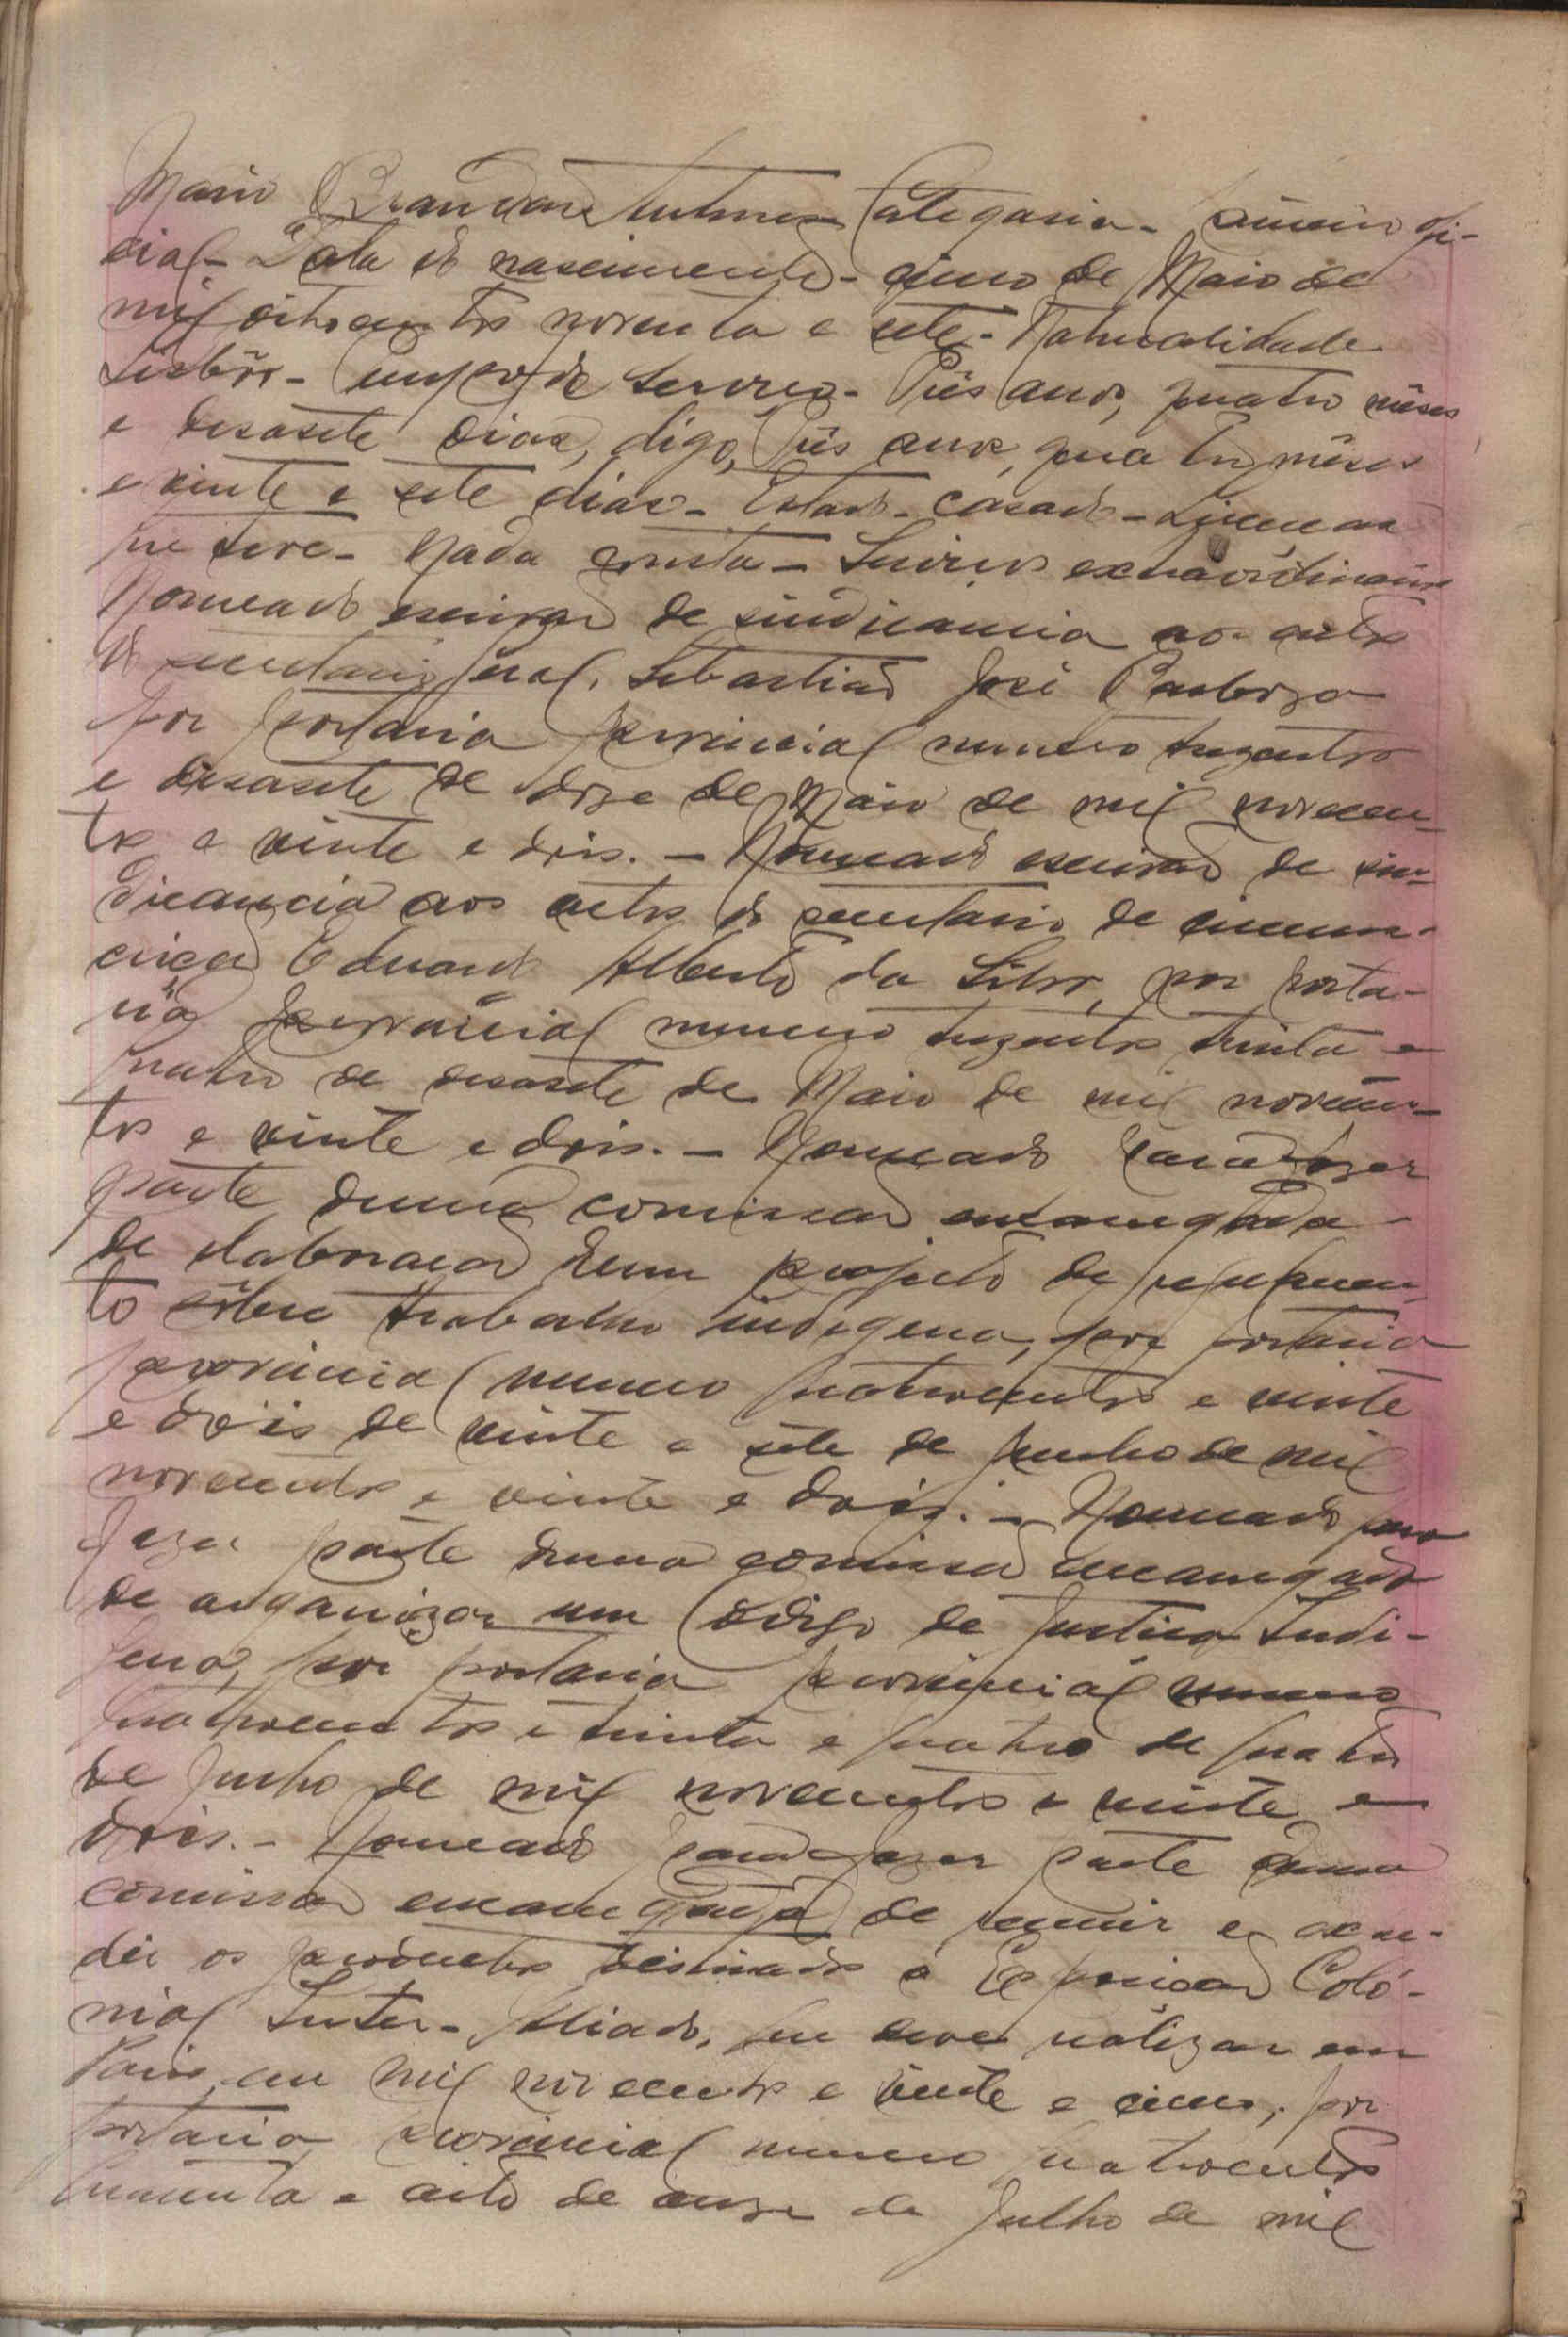 Mario Brandão Antunes Categoria - primeiro ofi-
cial - Data do nascimento - cinco de Maio de
mil oitocentos noventa e sete - Naturalidade
Lisbôa - Tempo de serviço - Três anos, quatro mêses
e desasete dias, digo, Três anos, quatro mêses
e vinte e sete dias - Estado - casado - Licenças
que teve - Nada consta - Serviços extraordinarios
Nomeado escrivão de sindicancia aos actos
do secretario geral, Sebastião José Barbosa
por portaria provincial numero trezentos
e desasete de doze de Maio de mil novecen-
tos e vinte e dois. - Nomeado escrivão de sin-
dicancia aos actos do secretario de circuns-
crição Eduardo Alberto da Silva, por porta-
ria provincial numero trezentos trinta e
quatro de desasete de Maio de mil novecen-
tos e vinte e dois. - Nomeado para fazer
parte duma comissão encarregada
de elaboração dum projecto de regulamen-
to sôbre trabalho indigena, por portaria
provincial numero quatrocentos e vinte
e dois de vinte e sete de Junho de mil
novecentos e vinte e dois. - Nomeado para
fazer parte duma comissão encarregada
de organizar um Codigo de Justiça Indi-
gena, por portaria provincial numero
quatrocentos e trinta e quatro de quatro
de Julho de mil novecentos e vinte e
dois. - Nomeado para fazer parte duma
comissão encarregada de reunir e
os productos destinados á Exposição Coló-
nial Inter-Aliada, que deve realizar em
Paris, em mil novecentos e vinte e cinco, por
portaria provincial numero quatrocentos
quarenta e oito de onze de Julho de mil